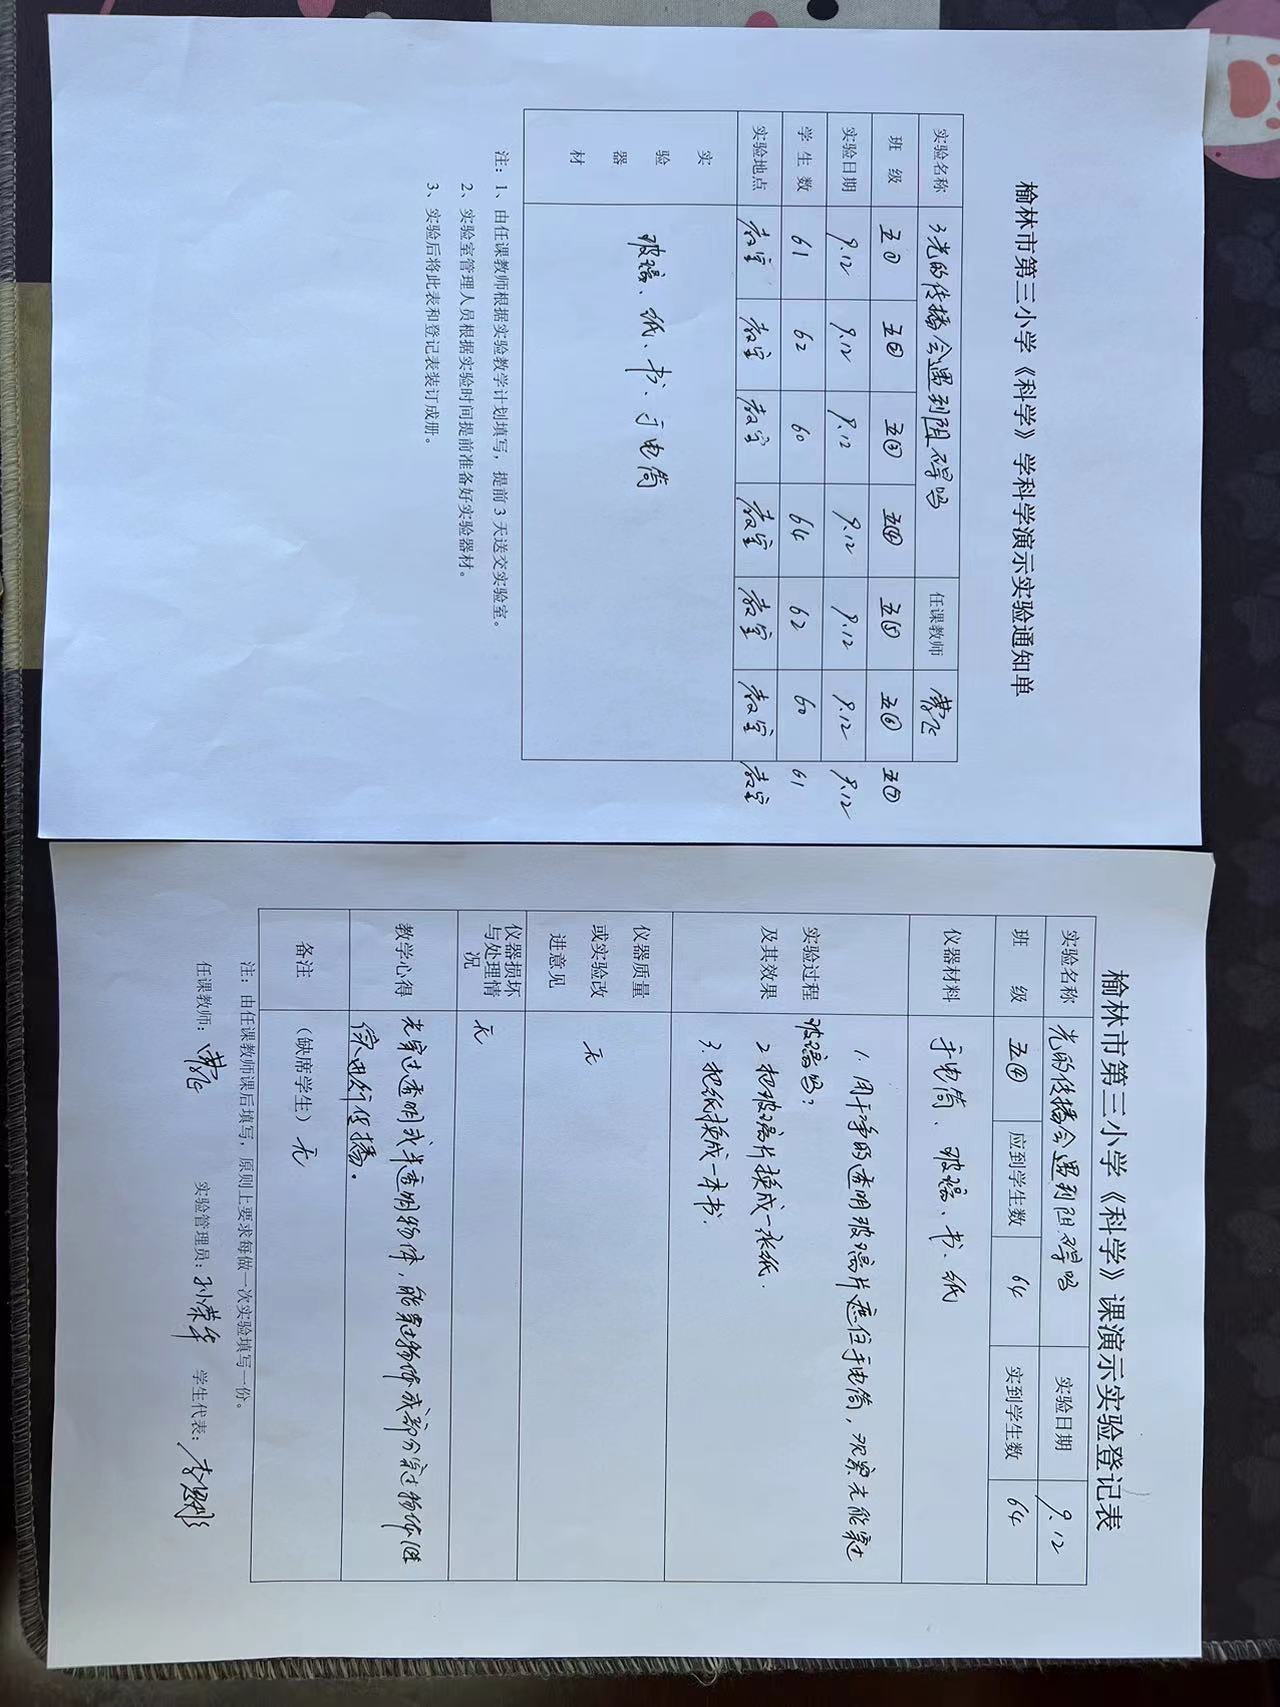 榆林市第三小学《科学》学科学演示实验通知单
实验名称 3光的传播会遇到阻碍吗 任课教师
班 级 五① 五② 五③ 五④ 五⑤ 五⑥ 五⑦
实验日期 9.12 9.12 9.12 9.12 9.12 9.12 9.12
学 生 数 61 62 60 64 62 60 61
实验地点 教室 教室 教室 教室 教室 教室 教室
实验器材 玻璃、纸、书、手电筒
注：1、由任课教师根据实验教学计划填写，提前3天送交实验室。
2、实验室管理人员根据实验时间提前准备好实验器材。
3、实验后将此表和登记表装订成册。
榆林市第三小学《科学》课演示实验登记表
实验名称 光的传播会遇到阻碍吗 实验日期 9.12
班 级 五④ 应到学生数 64 实到学生数 64
仪器材料 手电筒、玻璃、书、纸
实验过程及其效果
1. 用干净的透明玻璃片遮住手电筒，观察光能穿过
玻璃吗？
2. 把玻璃片换成一张纸.
3. 把纸换成一本书.
仪器质量或实验改进意见 无
仪器损坏与处理情况 无
教学心得 光穿过透明或半透明物体，能穿过物体或部分穿过物体继
续进行传播。
备注 （缺席学生）无
注：由任课教师课后填写，原则上要求每做一次实验填写一份。
任课教师： 实验管理员：孙荣华 学生代表：